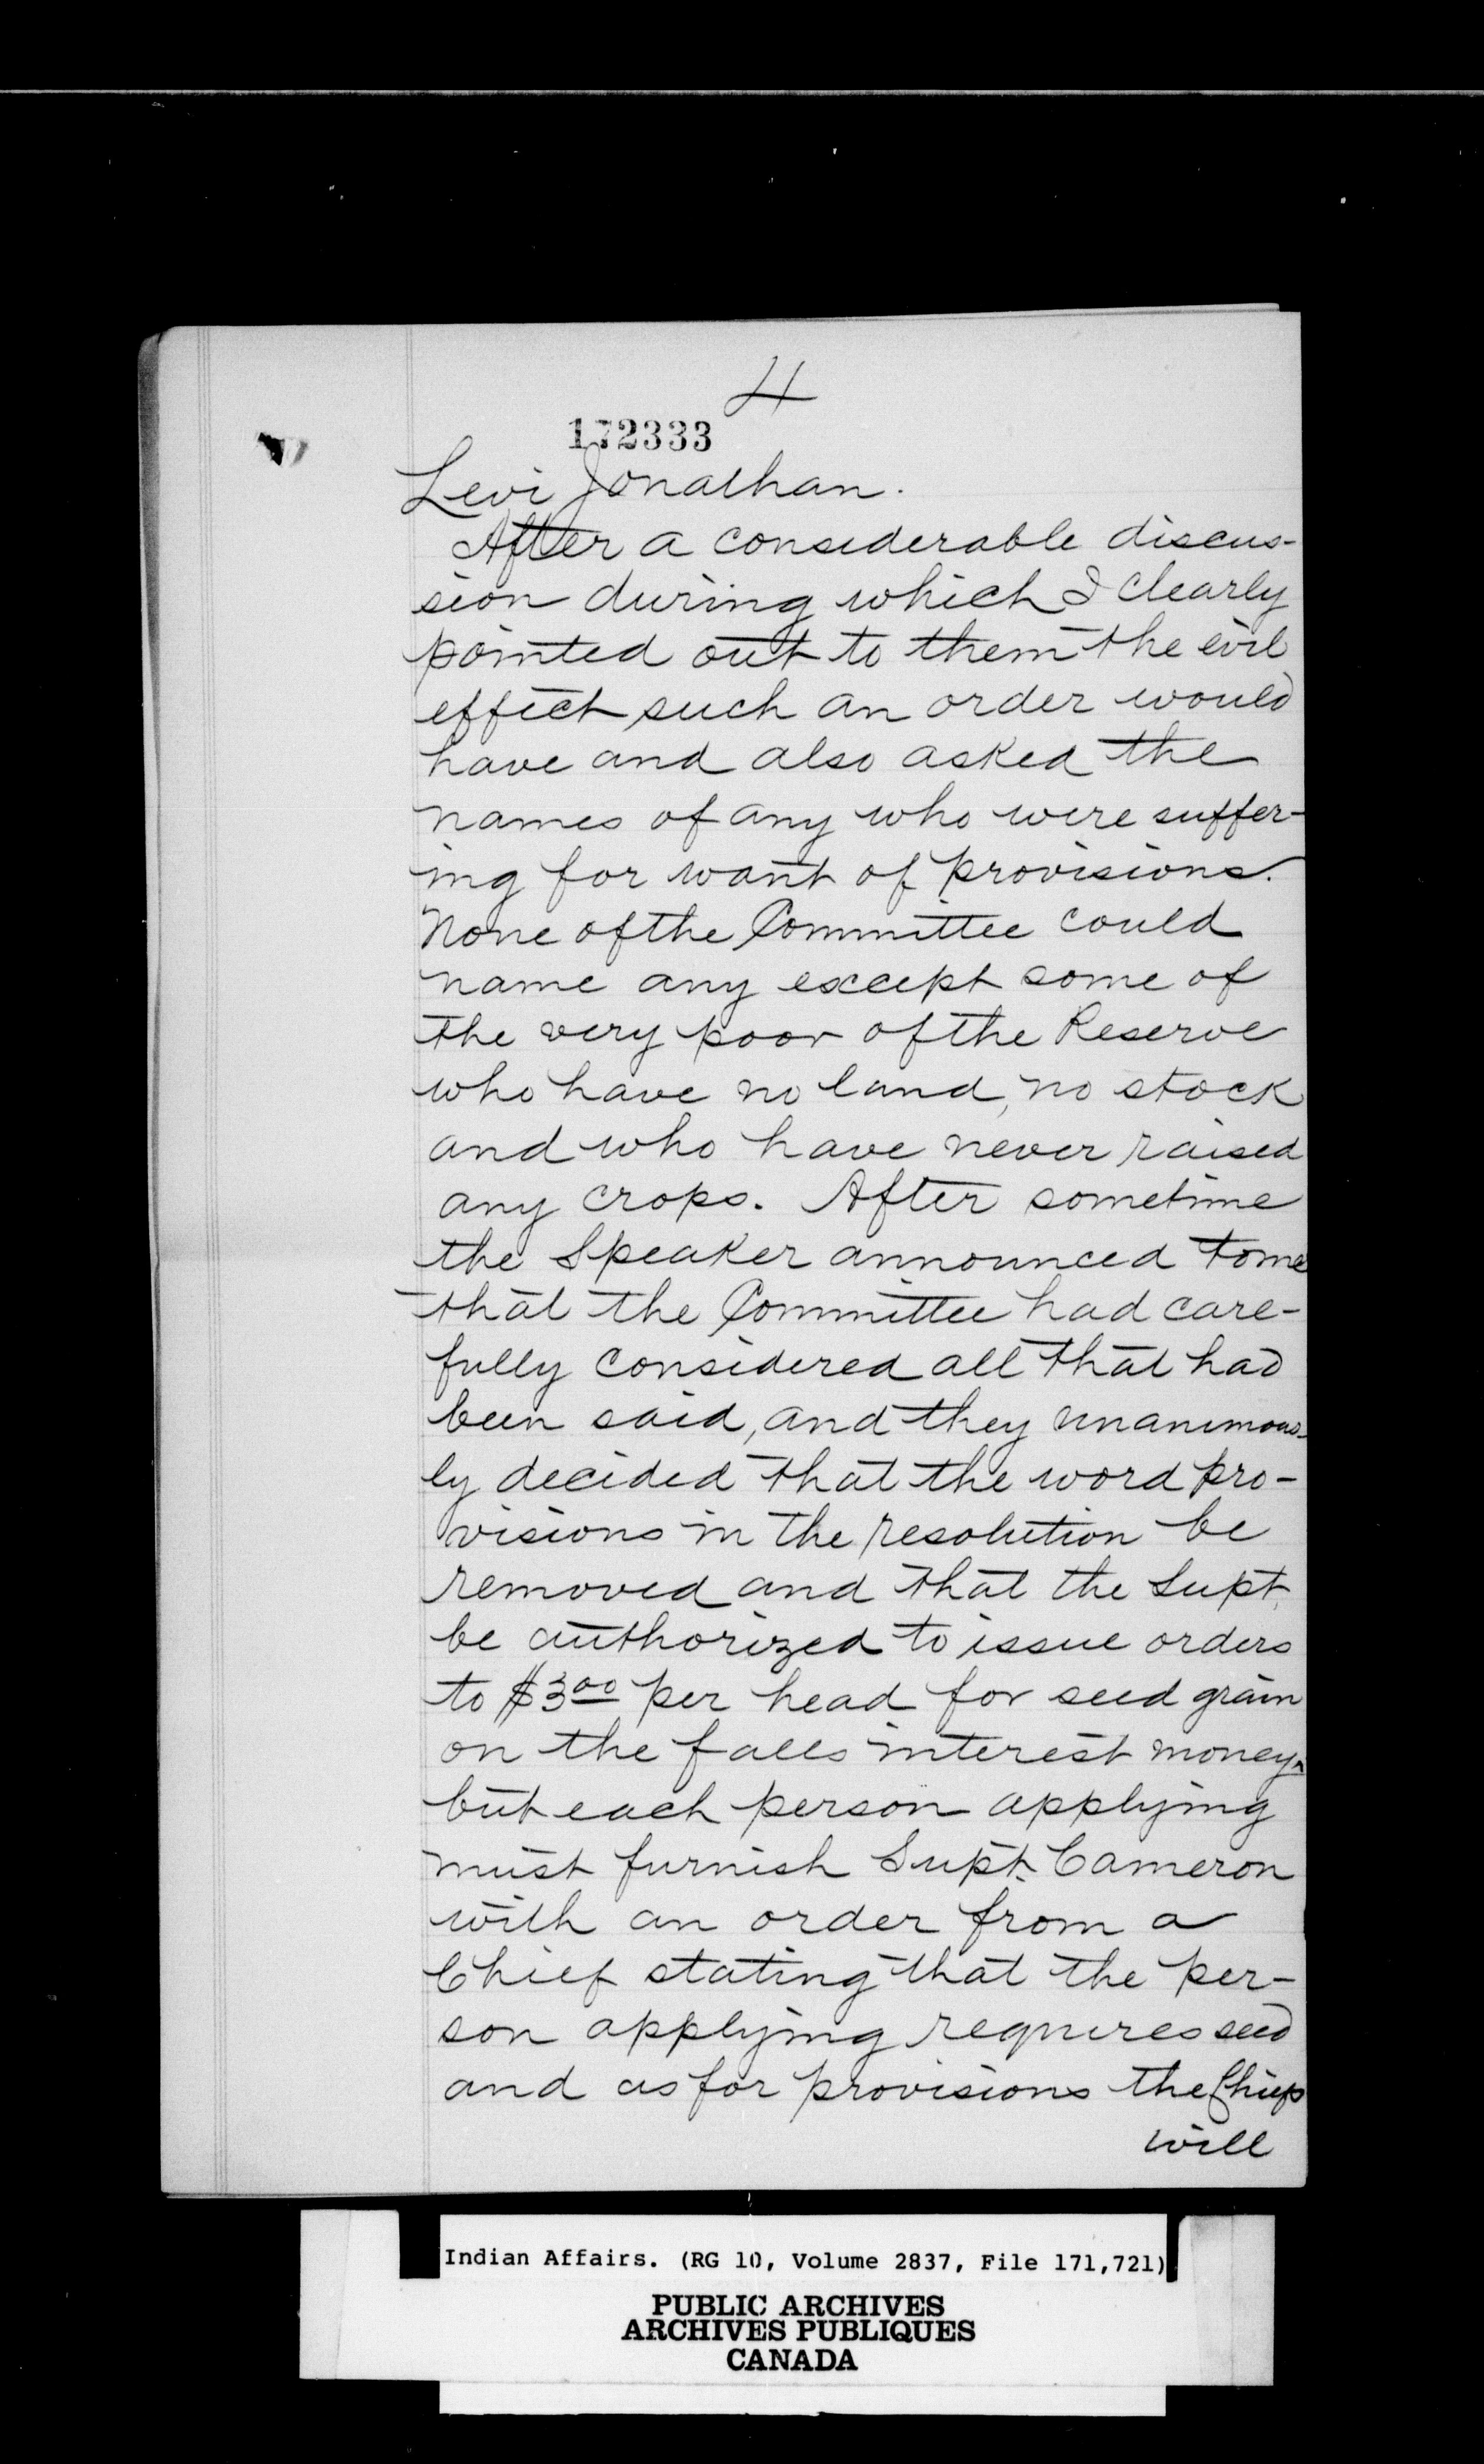 4
172333
Levi Jonathan.
After a considerable discus-
sion during which I clearly
pointed out to them the evil
effect such an order would
have and also asked the
names of any who were suffer-
ing for want of provisions.
None of the Committee could
name any except some of
the very poor of the Reserve
who have no land, no stock
and who have never raised
any crops. After sometime
the Speaker announced to me
that the Committee had care-
fully considered all that had
been said, and they unanimous-
ly decided that the word pro-
visions in the resolution be
removed and that the Supt.
be authorized to issue orders
to $3.00 per head for seed grain
on the falls interest money,
but each person applying
must furnish Supt. Cameron
with an order from a
Chief stating that the per-
son applying requires seed
and as for provisions the Chiefs
will
Indian Affairs. (RG 10, Volume 2837, File 171,721)
PUBLIC ARCHIVES
ARCHIVES PUBLIQUES
CANADA